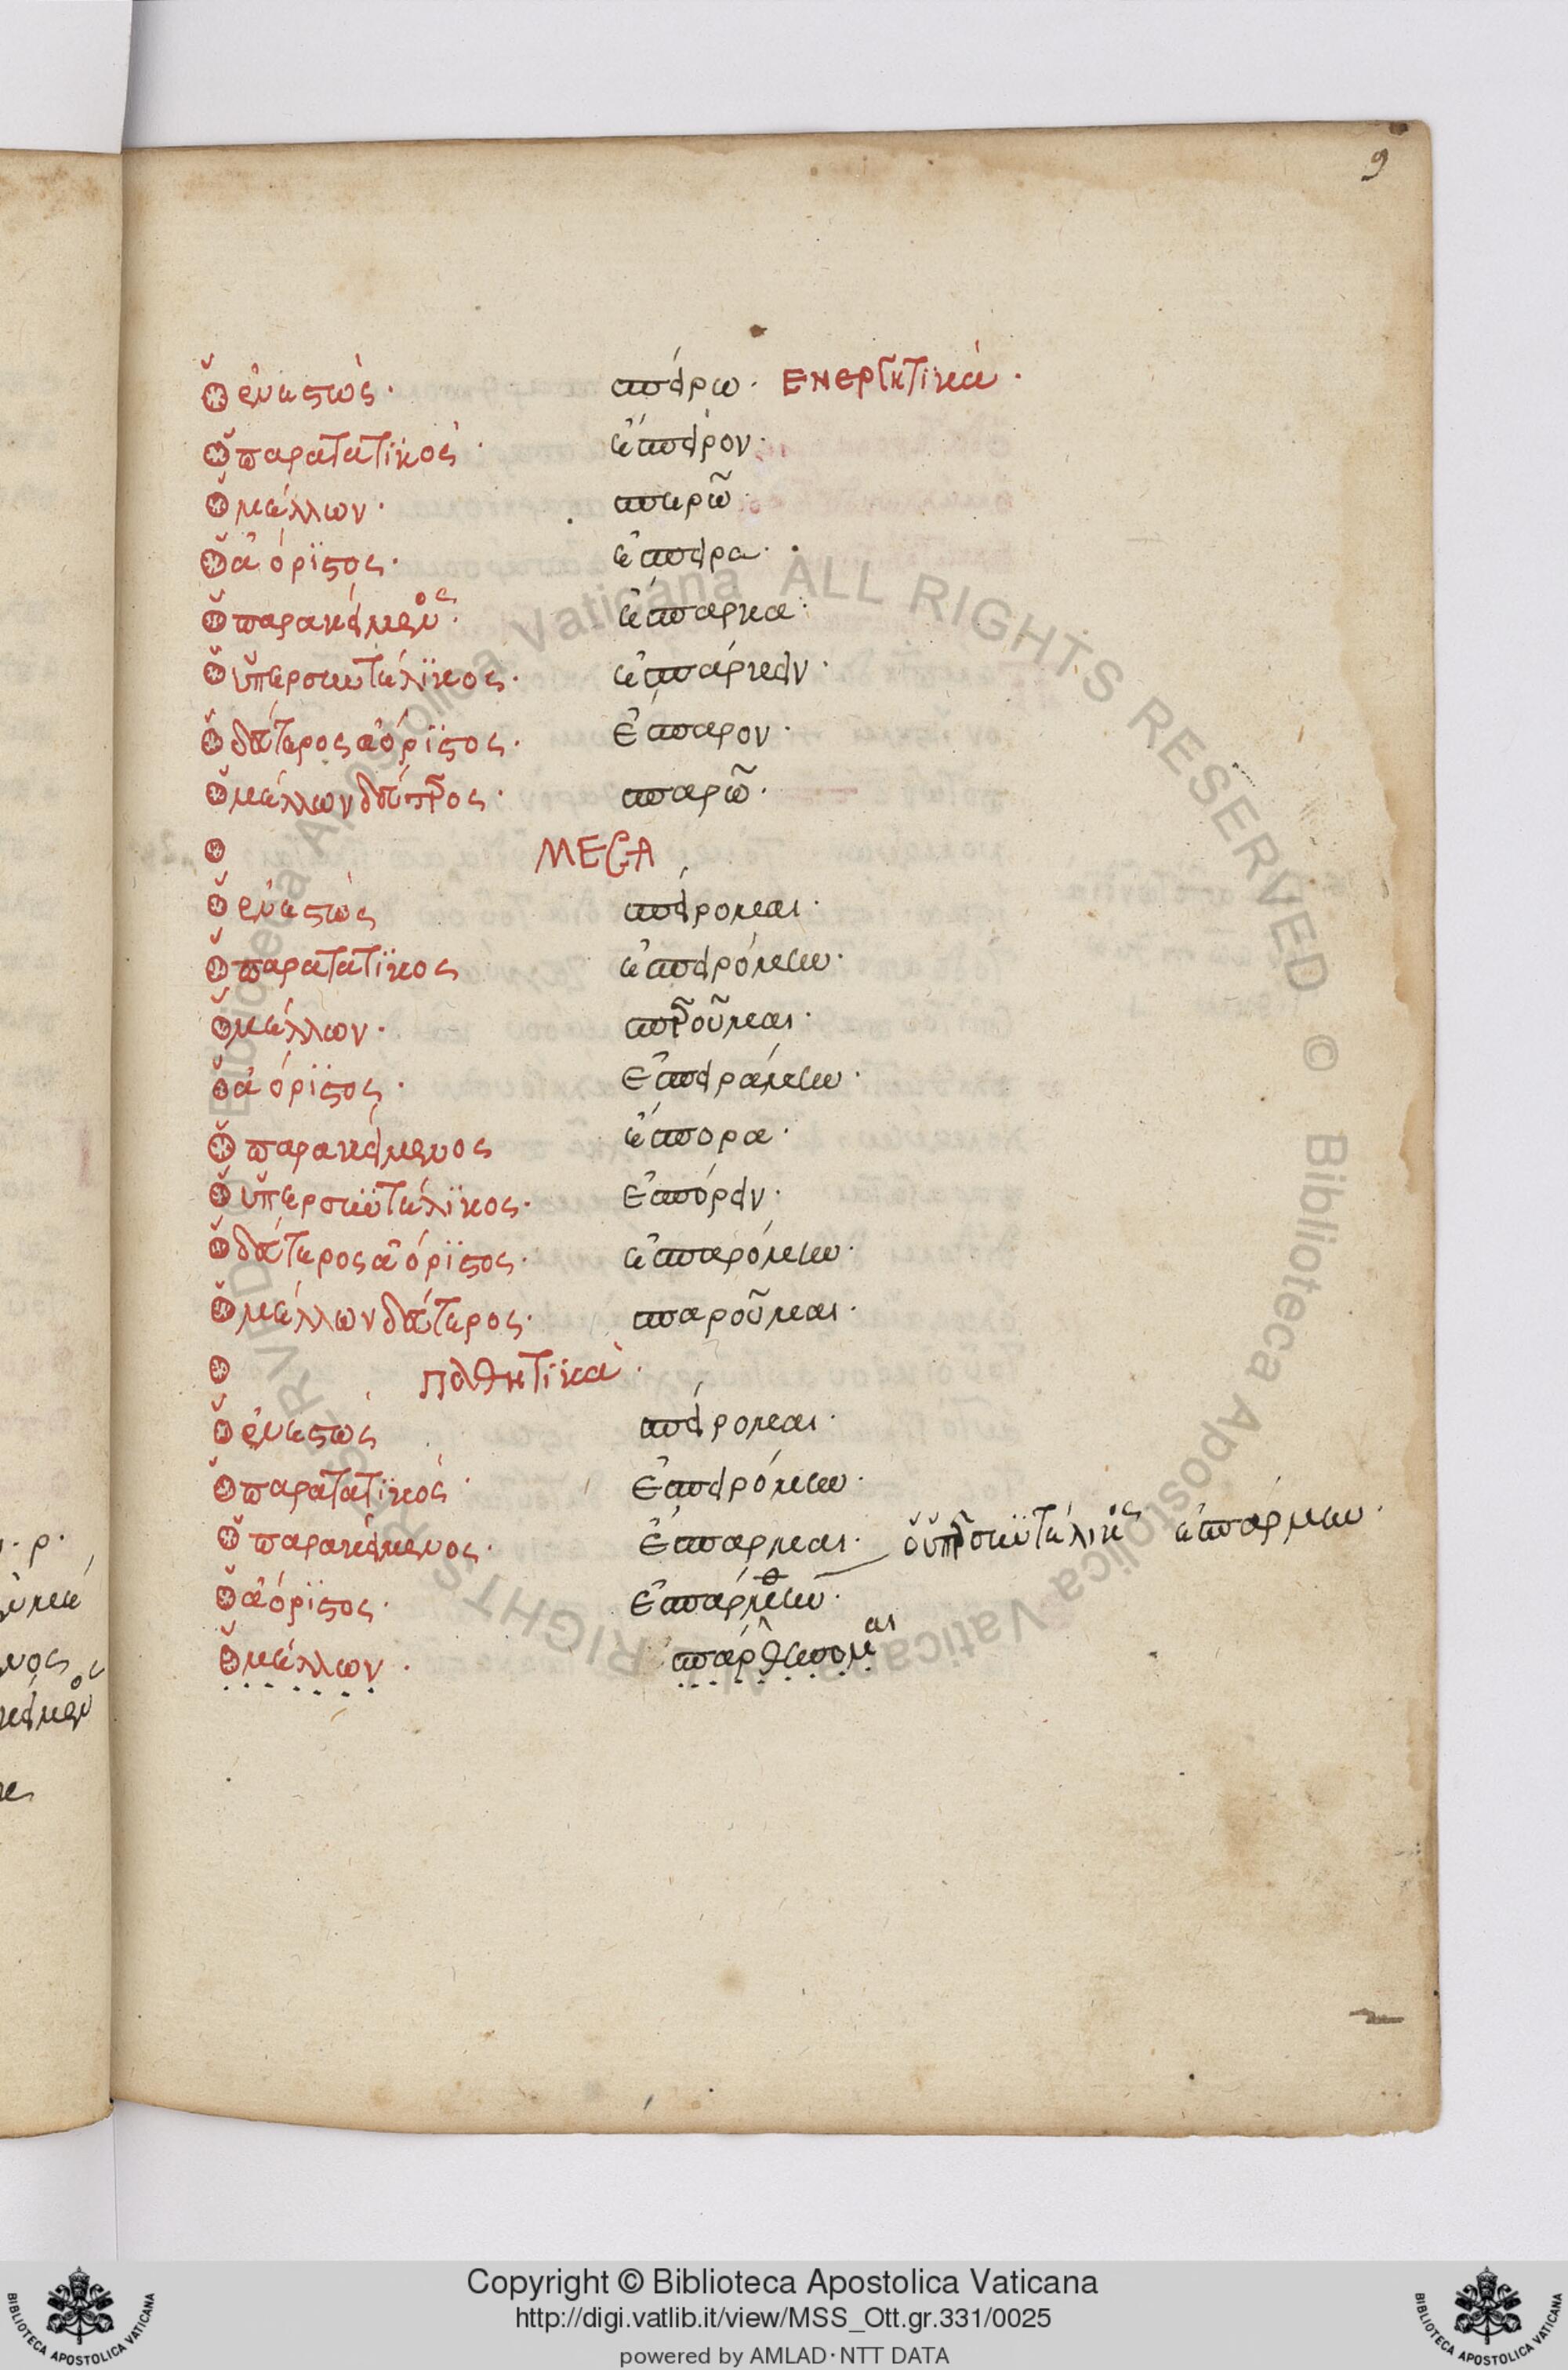 9
ὁ ἐνεστώς· σπείρω· ΕΝΕΡΓΗΤΙΚΆ·
ὁ παρατατϊκός· ἔσπειρον·
ὁ μέλλων· σπερῶ·
ὁ ἀόρϊστος· ἔσπειρα·
ὁ παρακείμενος· ἔσπαρκα·
ὁ ὑπερσυντέλϊκος· ἐσπάρκειν·
ὁ δεύτερος ἀόρϊστος· ἔσπαρον·
ὁ μέλλων δεύτερος· σπαρῶ·
ΜΕCΑ
ὁ ἐνεστώς σπείρομαι·
ὁ παρατατϊκος ἐσπειρόμην·
ὁ μέλλων· σπεροῦμαι·
ὁ ἀόρϊστος· ἐσπειράμην·
ὁ παρακείμενος ἔσπορα·
ὁ ὑπερσυντέλϊκος· ἐσπόρειν·
ὁ δεύτερος ἀόρϊστος· ἐσπαρόμην·
ὁ μέλλων δεύτερος· σπαροῦμαι·
παθητικά·
ὁ ἐνεστώς σπείρομαι·
ὁ παρατατϊκός· ἐσπειρόμην·
ὁ παρακείμενος· ἔσπαρμαι· ὁ ὑπερσυντέλικος ἐσπάρμην·
ὁ ἀόρϊστος· ἐσπάρθην·
ὁ μέλλων· σπαρθήσομαι
Copyright © Biblioteca Apostolica Vaticana
http://digi.vatlib.it/view/MSS_Ott.gr.331/0025
powered by AMLAD·NTT DATA